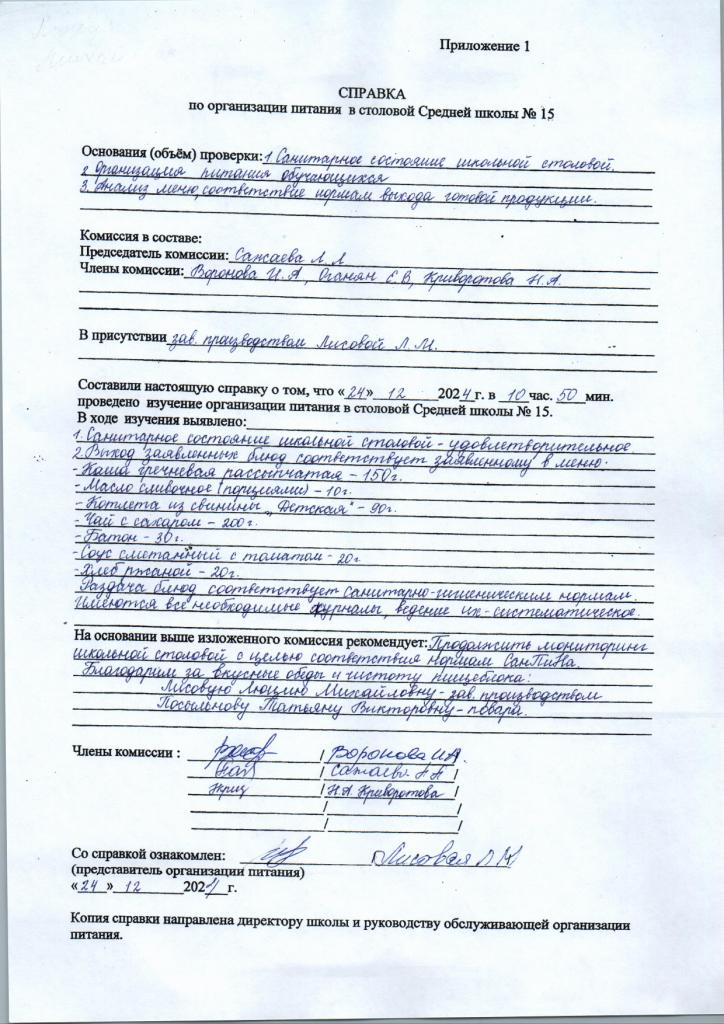 Приложение 1
СПРАВКА
по организации питания в столовой Средней школы № 15
Основания (объём) проверки: 1. Санитарное состояние школьной столовой.
2. Организация питания обучающихся
3. Анализ меню, соответствие нормам выхода готовой продукции.
Комиссия в составе:
Председатель комиссии: Сажаева Л. Л
Члены комиссии: Воронова И.А, Оганян Е.В, Криворотова Н.А.
В присутствии зав. производством Лисовой Л.М.
Составили настоящую справку о том, что «24» 12 2024 г. в 10 час. 50 мин.
проведено изучение организации питания в столовой Средней школы № 15.
В ходе изучения выявлено:
1. Санитарное состояние школьной столовой - удовлетворительное.
2. Выход заявленных блюд соответствует заявленному в меню.
- Каша гречневая рассыпчатая - 150г.
- Масло сливочное (порциями) - 10г.
- Котлета из свинины „Детская" - 90г.
- Чай с сахаром - 200г.
- Батон - 30г.
- Соус сметанный с томатом - 20г
- Хлеб ржаной - 20г.
Раздача блюд соответствует санитарно-гигиеническим нормам.
Имеются все необходимые журналы, ведение их - систематическое.
На основании выше изложенного комиссия рекомендует: Продолжить мониторинг
школьной столовой с целью соответствия нормам СанПиНа.
Благодарим за вкусные обеды и чистоту пищеблока:
Лисовую Люцию Михайловну - зав. производством
Посыльнову Татьяну Викторовну - повара.
Члены комиссии : / Воронова И.А.
/ Сажаева /
/ Н.А. Криворотова /
/ /
/ /
Со справкой ознакомлен: Лисовая Л М
(представитель организации питания)
«24» 12 2024 г.
Копия справки направлена директору школы и руководству обслуживающей организации
питания.